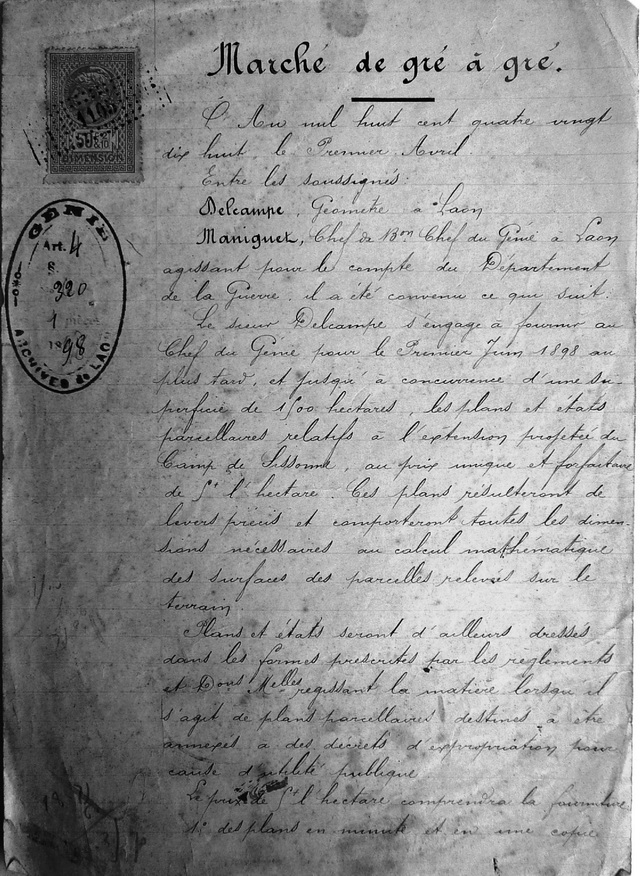 Marché de gré à gré.
L'An mil huit cent quatre vingt
dix huit, le Premier Avril.
Entre les soussignés:
Delcampe, Géomètre à Laon
Maniguet, Chef de Bon Chef du Génie à Laon
agissant pour le compte du Département
de la Guerre, il a été convenu ce qui suit:
Le sieur Delcampe s'engage à fournir au
Chef du Génie pour le Premier Juin 1898 au
plus tard, et jusqu'à concurrence d'une su-
perficie de 1500 hectares, les plans et états
parcellaires relatifs à l'extension projetée du
Camp de Sissonne, au prix unique et forfaitaire
de 5f l'hectare. Ces plans résulteront de
levers précis et comporteront toutes les dimen-
sions nécessaires au calcul mathématique
des surfaces des parcelles relevés sur le
terrain.
Plans et états seront d'ailleurs dressés
dans les formes prescrites par les règlements
et Dons Melles régissant la matière lorsqu'il
s'agit de plans parcellaires destinés à être
annexés à des décrets d'expropriation pour
cause d'utilité publique
Le prix de 5f l'hectare comprendra la fourniture
1° des plans en minute et en une copie
1105
50c
DIMENSION
GÉNIE
Art. 4
§.
320
1 pièce
1898
ARCHIVES de LAON